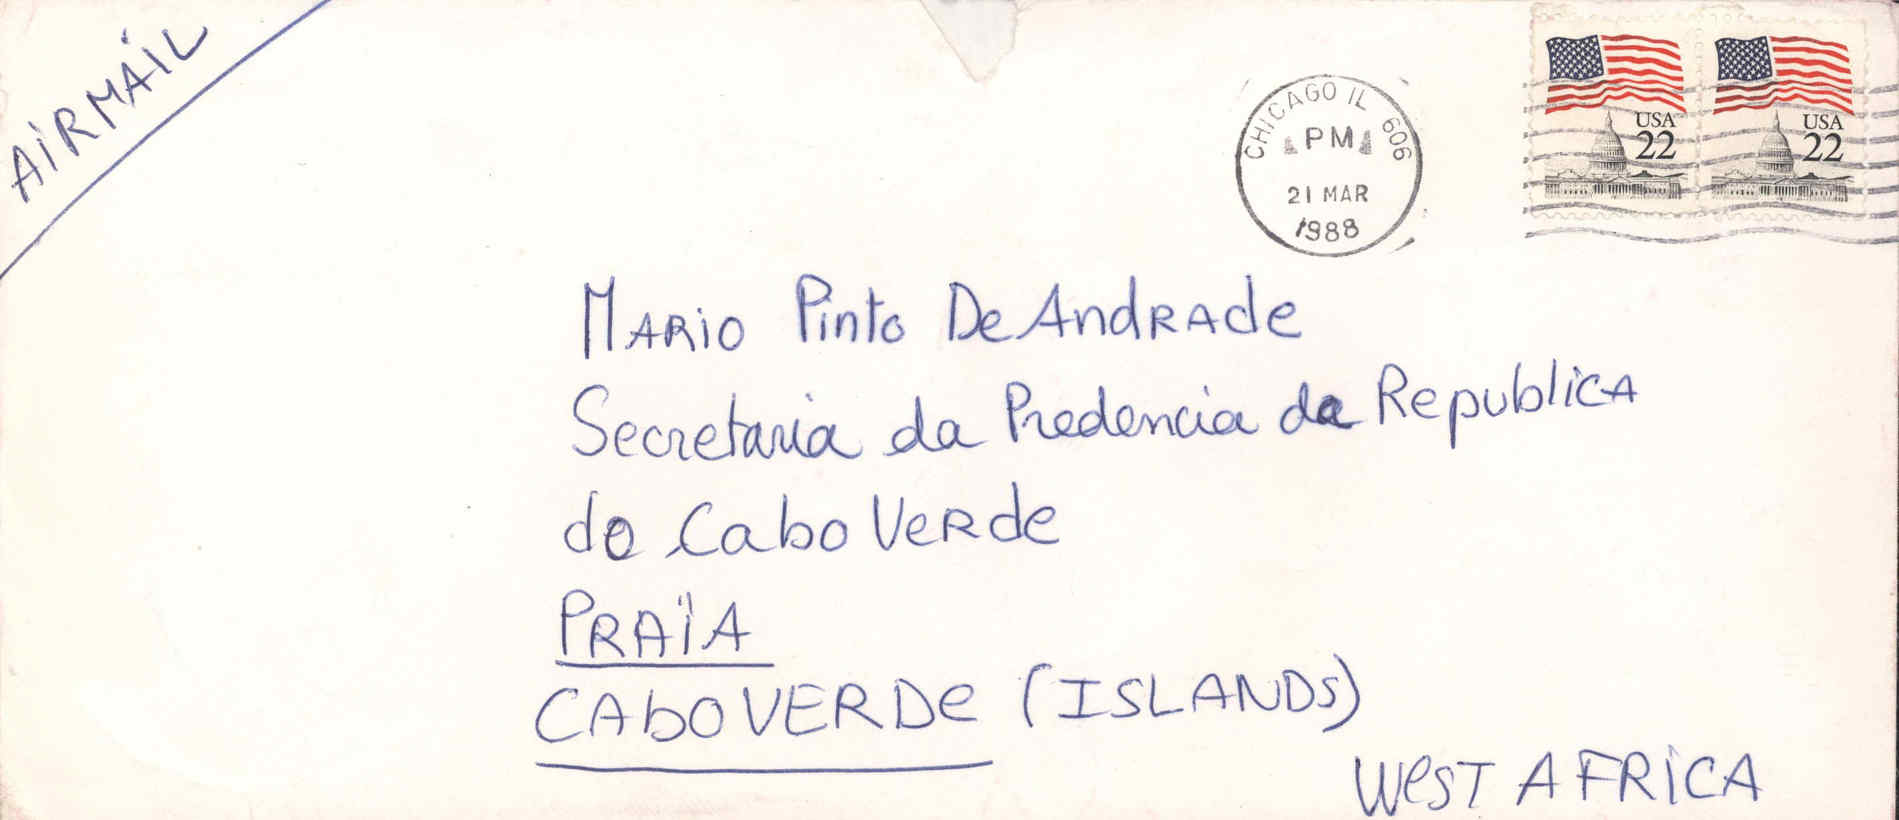 AIRMAIL
CHICAGO IL 606
PM
21 MAR
1988
USA
22
USA
22
MARIO Pinto De AndRAde
Secretaria da Predencia da RepublicA
do Cabo VeRde
PRAÏA
CAboVERDe (ISLANDS)
WesT AFRICA